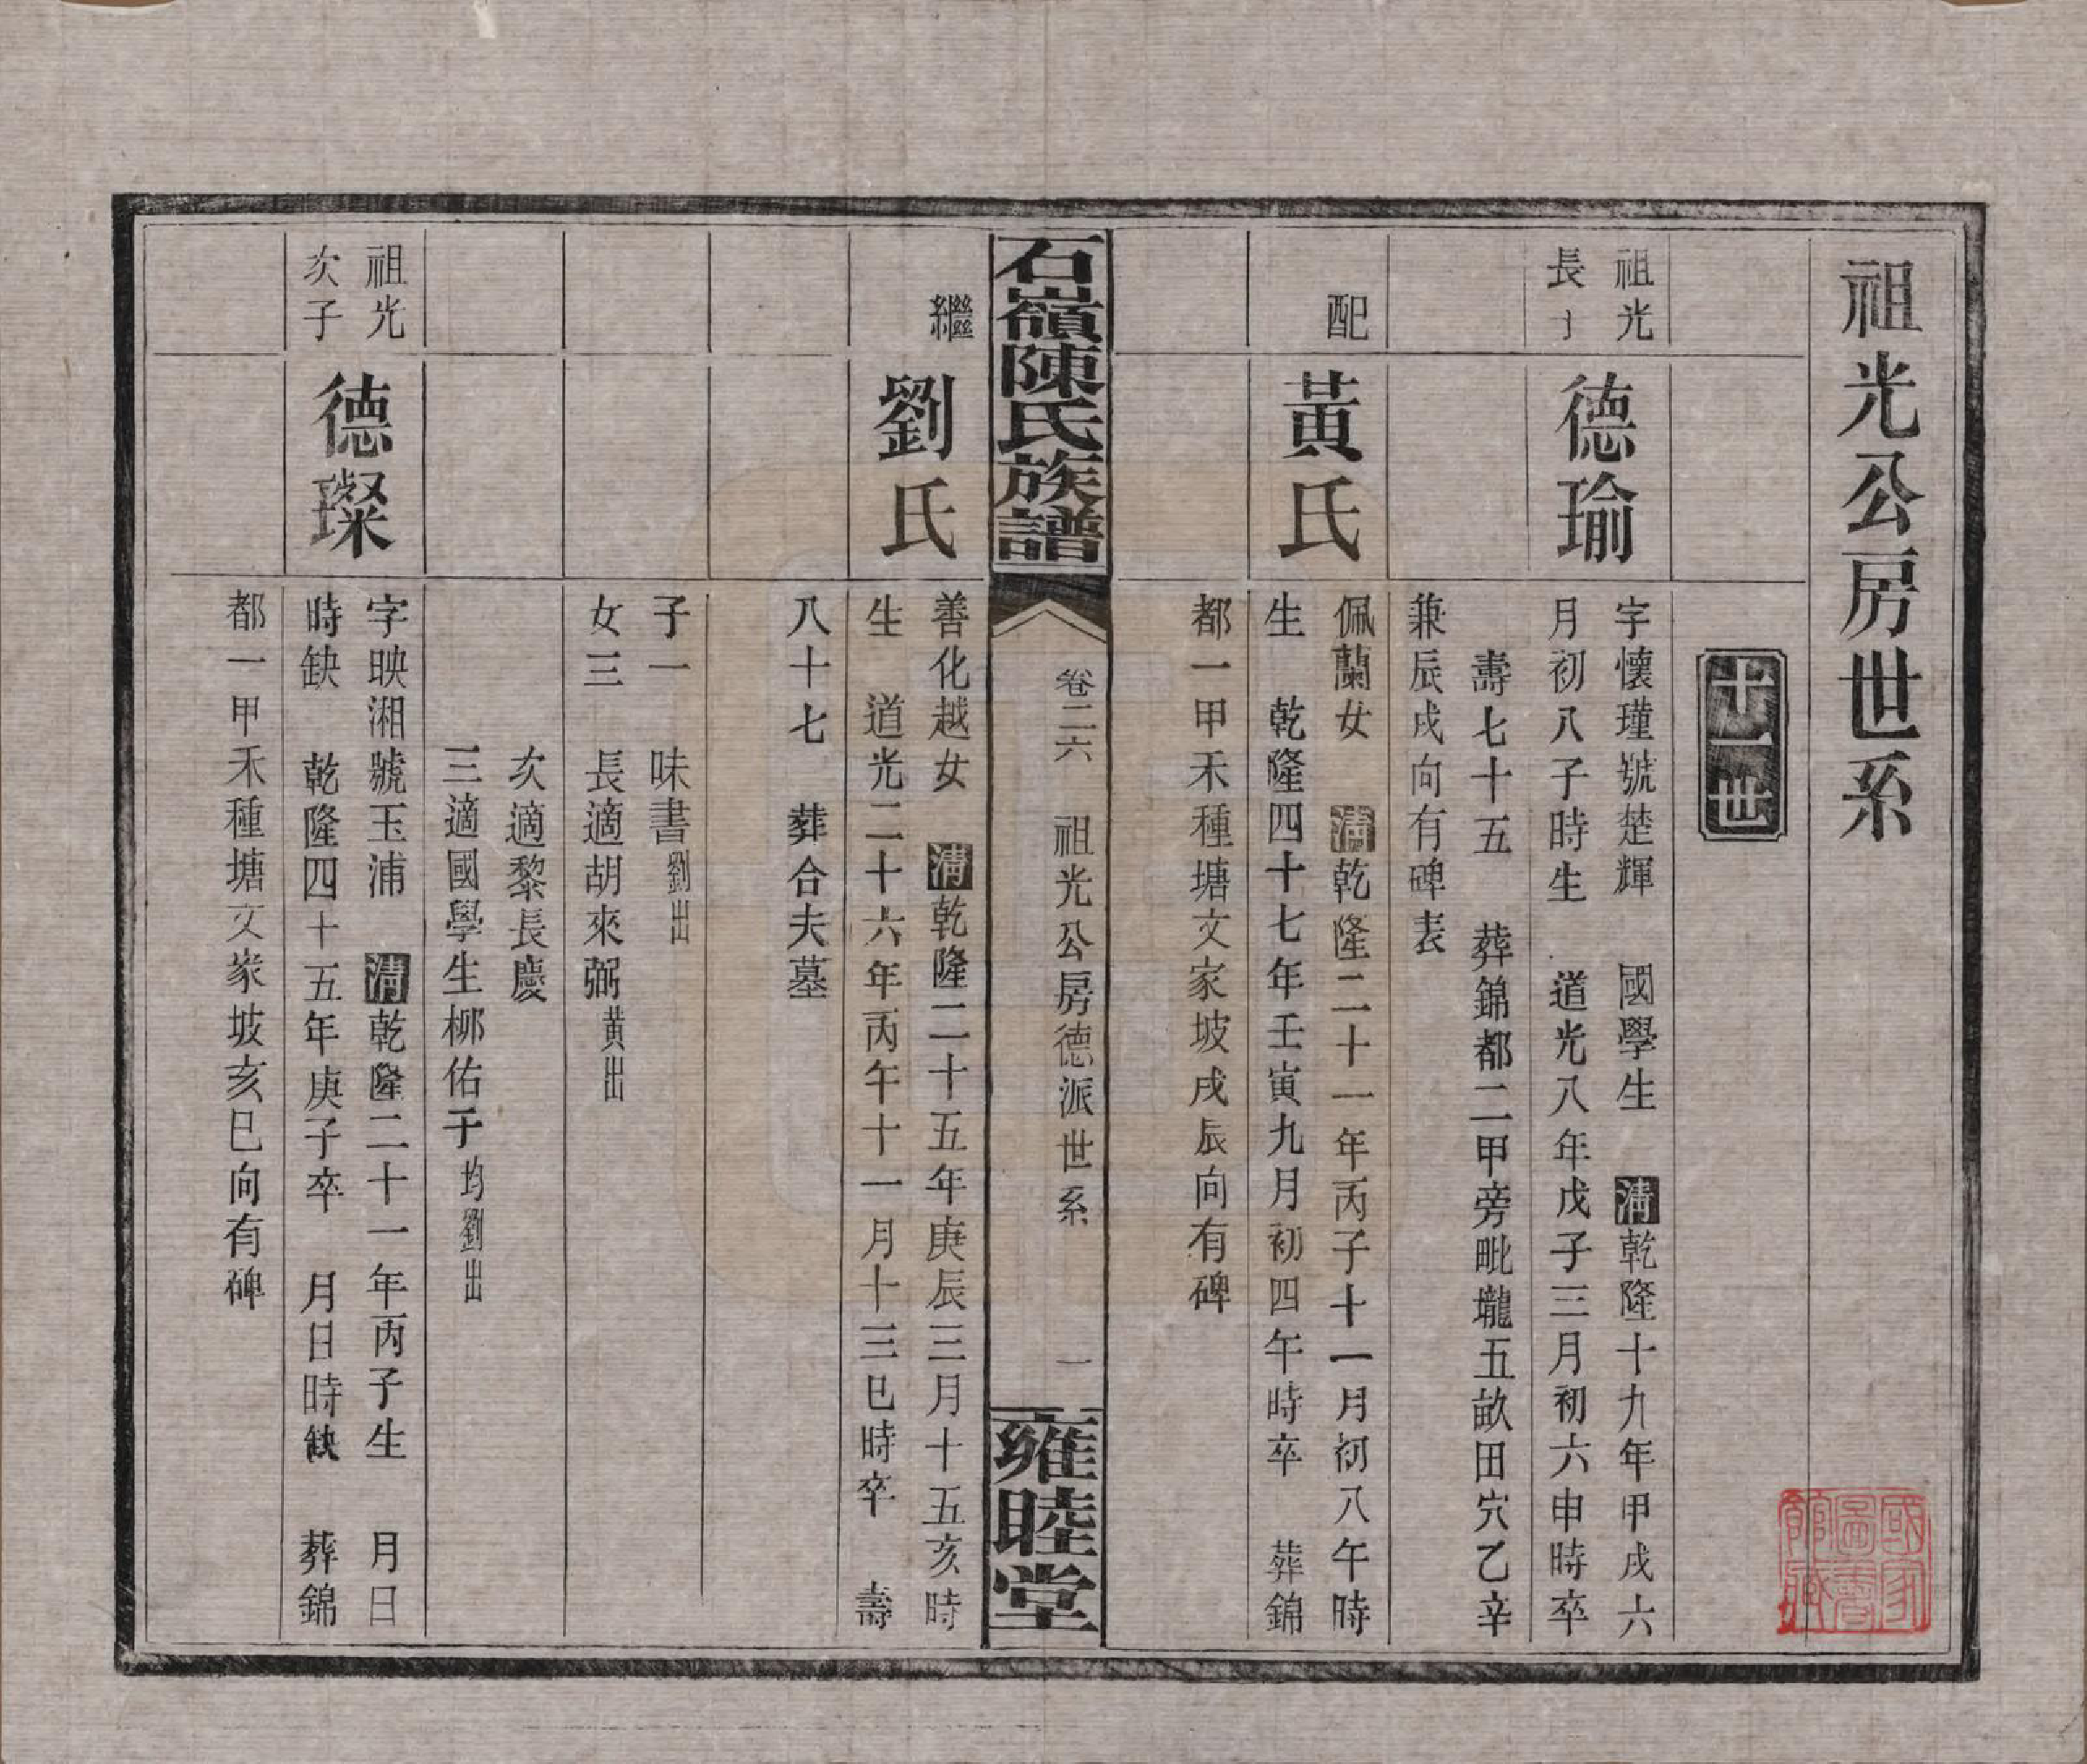 祖光公房世系
十一世
祖光
長子
德瑜
字懷瑾號楚輝 國學生 清乾隆十九年甲戌六
月初八子時生 道光八年戊子三月初六申時卒
壽七十五 葬錦都二甲旁毗壠五畝田穴乙辛
兼辰戌向有碑表
配
黃氏
佩蘭女 清乾隆二十一年丙子十一月初八午時
生 乾隆四十七年壬寅九月初四午時卒 葬錦
都一甲禾種塘文家坡戌辰向有碑
石嶺陳氏族譜
卷二六 祖光公房德派世系 一
雍睦堂
繼
劉氏
善化越女 清乾隆二十五年庚辰三月十五亥時
生 道光二十六年丙午十一月十三巳時卒 壽
八十七 葬合夫墓
子一 味書劉出
女三 長適胡來弼黃出
次適黎長慶
三適國學生柳佑予均劉出
祖光
次子
德璨
字映湘號玉浦 清乾隆二十一年丙子生 月日
時缺 乾隆四十五年庚子卒 月日時缺 葬錦
都一甲禾種塘文家坡亥巳向有碑
國家圖書館藏